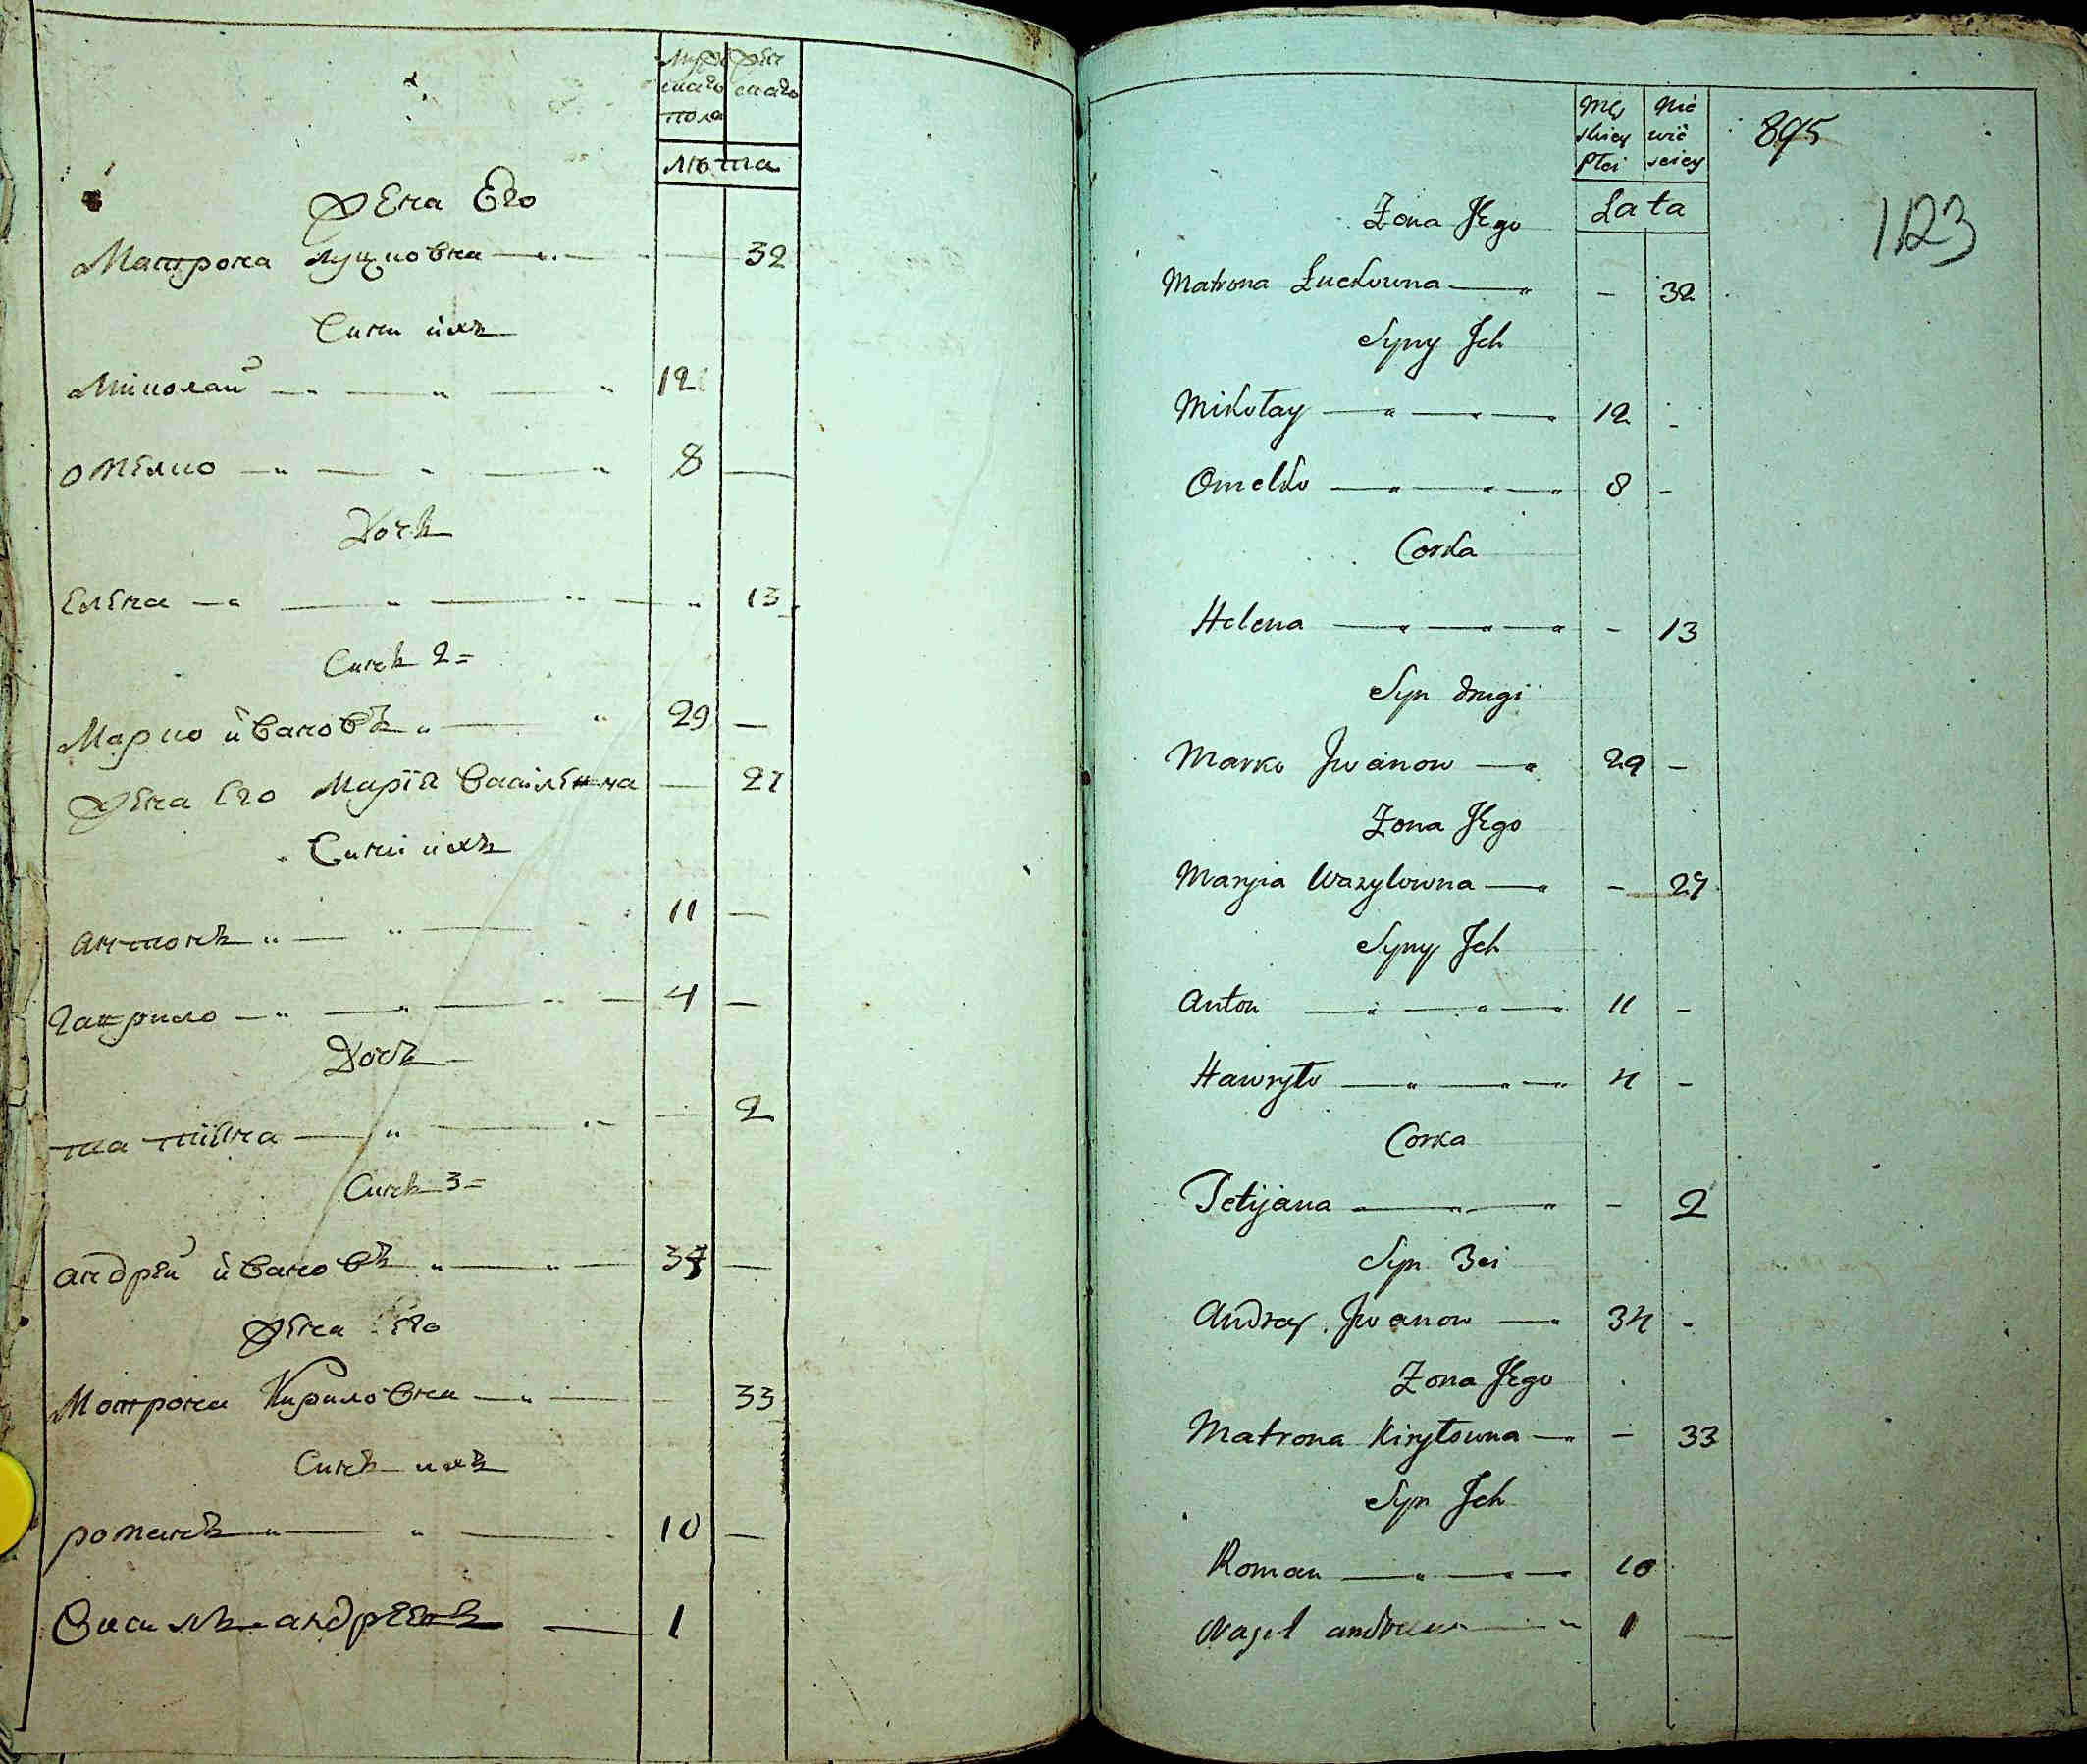 Мужескаго пола
Женскаго
лѣта
Жена Его
Матрона луцковна 32
Сини ихъ
Миколай 12
Омелко 8
Дочь
Елена 13
Синъ 2=
Марко ивановъ 29
Жена Его Марїя Василевна 27
Сини ихъ
антонъ 11
гаврило 4
Дочъ
татїяна 2
Синъ 3=
андрей ивановъ 34
Жена Его
Мотрона Кириловна 33
Синъ ихъ
романъ 10
Василь андреевъ 1
Męskiey Płci
Niewieściey
Lata
895
1123
Żona Jego
Matrona Łuckowna 32
Syny Jch
Mikołay 12
Omelko 8
Corka
Helena 13
Syn drugi
Marko Jwanow 29
Żona Jego
Maryia Wazylowna 27
Syny Jch
Anton 11
Hawryło 4
Corka
Tetijana 2
Syn 3ci
Andrey Jwanow 34
Żona Jego
Matrona Kiryłowna 33
Syn Jch
Roman 10
Wasil 1